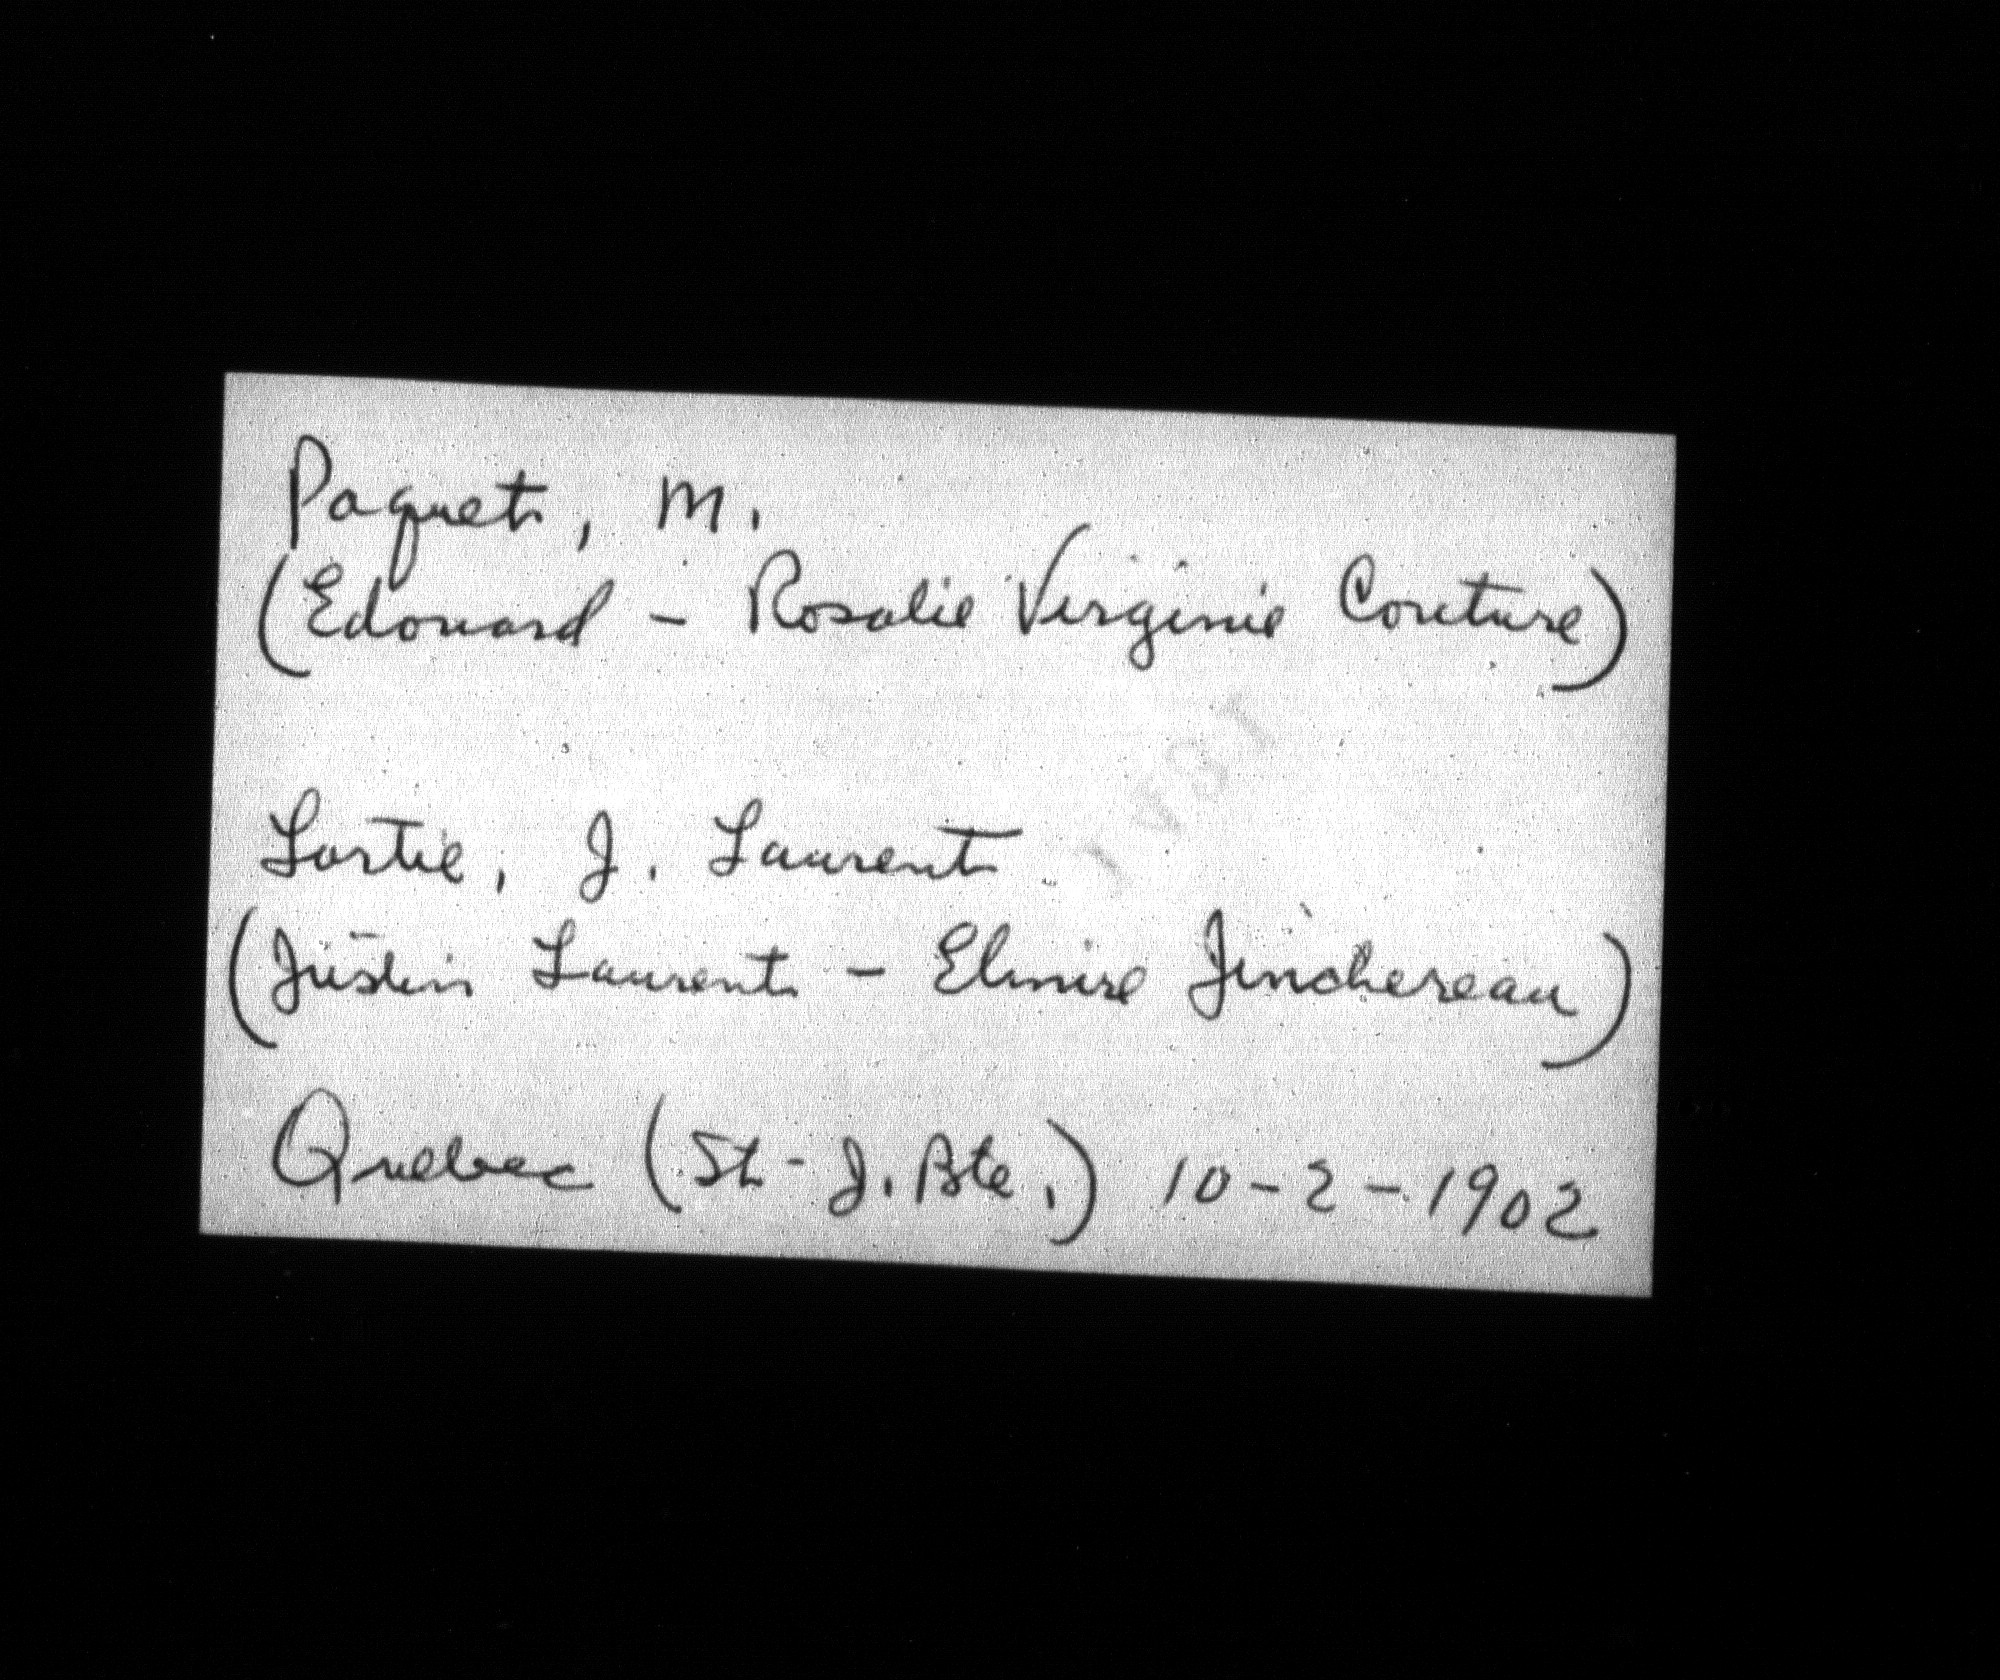 Paquet, M.
(Edouard - Rosalie Virginie Couture)
Lortie, J. Laurent
(Justin Laurent - Elmire Jinchereau)
Quebec (St-J. Bte.) 10-2-1902